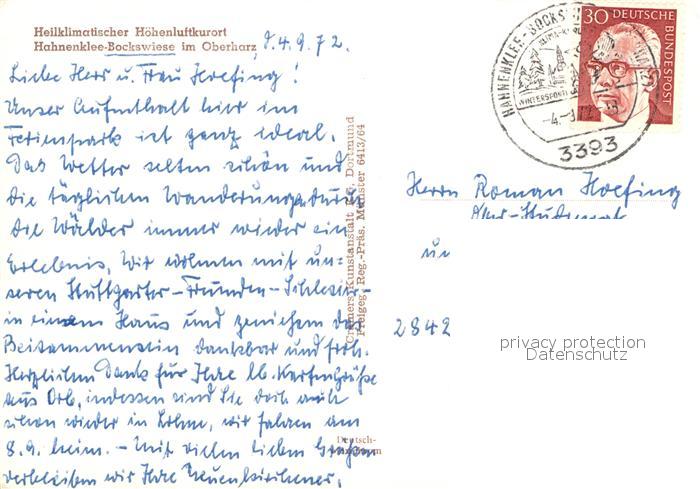 Heilklimatischer Höhenluftkurort
Hahnenklee-Bockswiese im Oberharz, d. 4.9.72.
Liebe Herr u. Frau Hoefing!
Unser Aufenthalt hier im
Ferienpark ist ganz ideal.
Das Wetter selten schön und
die täglichen Wanderungen durch
die Wälder immer wieder ein
Erlebnis. Wir wohnen mit un-
seren Stuttgarter-Freunden-
in einem Haus und genießen das
Beisammensein dankbar und froh.
Herzlichen Dank für Ihre lb. Kartengrüße
aus Orb, indessen sind Sie doch auch
schon wieder in Lohne, wir fahren am
8.9. heim. - Mit vielen lieben Grüßen
verbleiben wir Ihre Neuenkirchener.
Cramers Kunstanstalt KG. Dortmund
Freigeg. Reg.-Präs. Münster 6413/64
HAHNENKLEE-BOCKSWIESE
WINTERSPORT
3393
30 DEUTSCHE
BUNDESPOST
Herrn Roman Hoefing
2842
privacy protection
Datenschutz